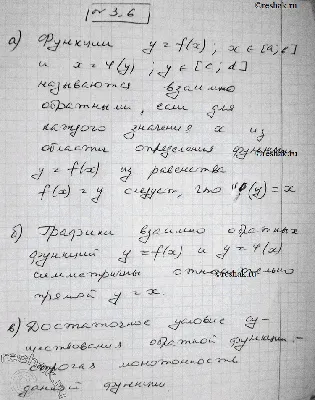 ©reshak.ru
№ 3.6
а) Функции y = f(x); x ∈ [a; b]
и x = φ(y); y ∈ [c; d]
называются взаимно
обратными, если для
каждого значения x из
области определения функции
y = f(x) из равенства
f(x) = y следует, что φ(y) = x
б) Графики взаимно обратных
функций y = f(x) и y = φ(x)
симметричны относительно
прямой y = x.
в) Достаточное условие су-
ществования обратной функции -
строгая монотонность
данной функции